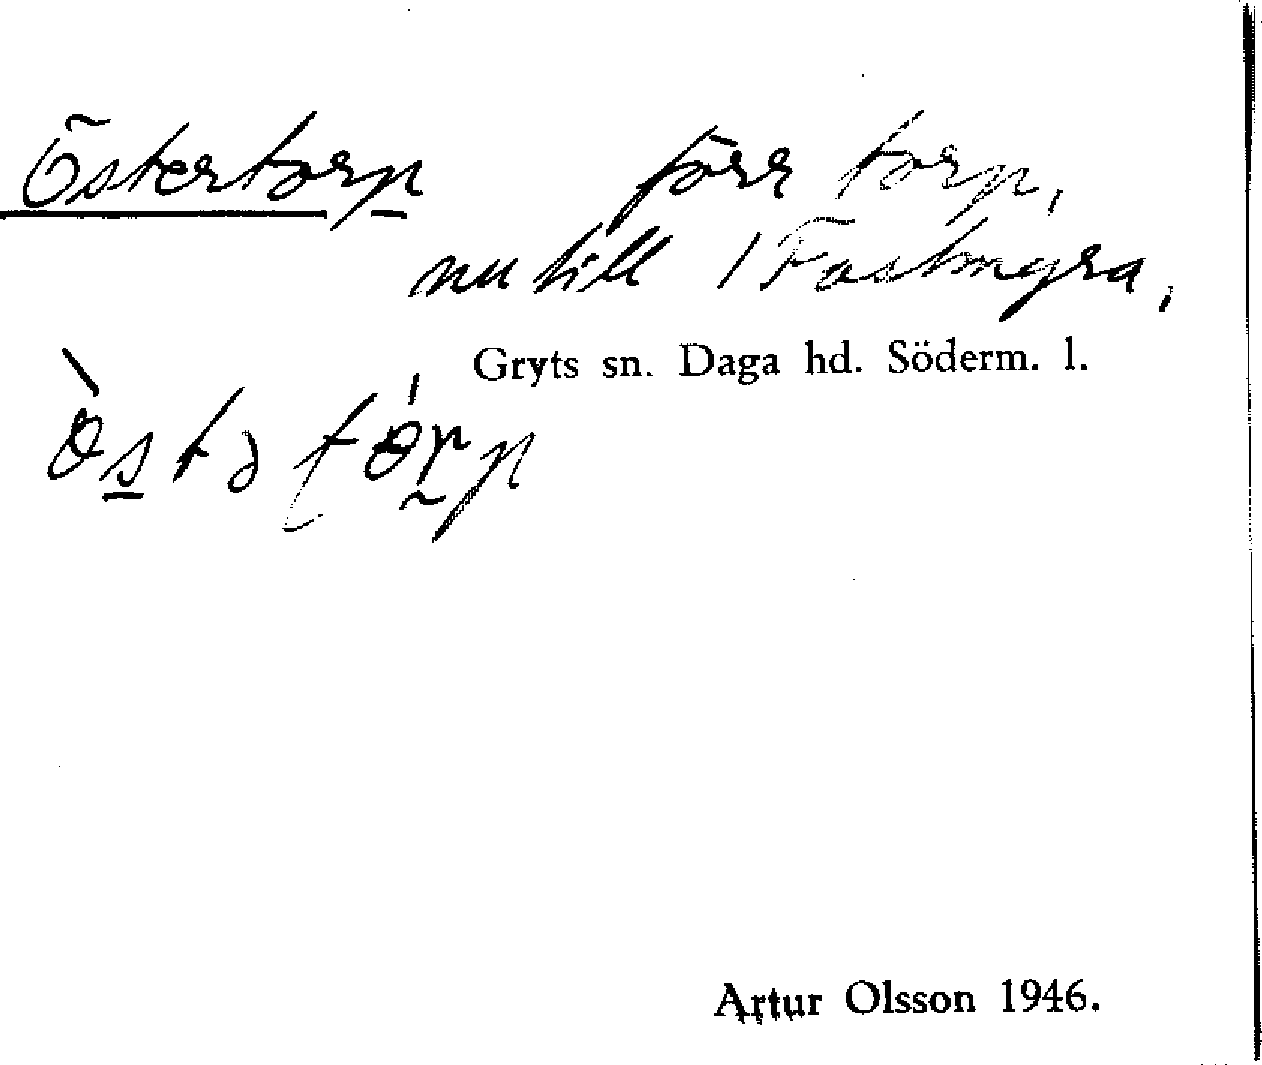 Östertorp förr torp,
nu till 1 Fastmyra,
Gryts sn. Daga hd. Söderm. l.
Artur Olsson 1946.